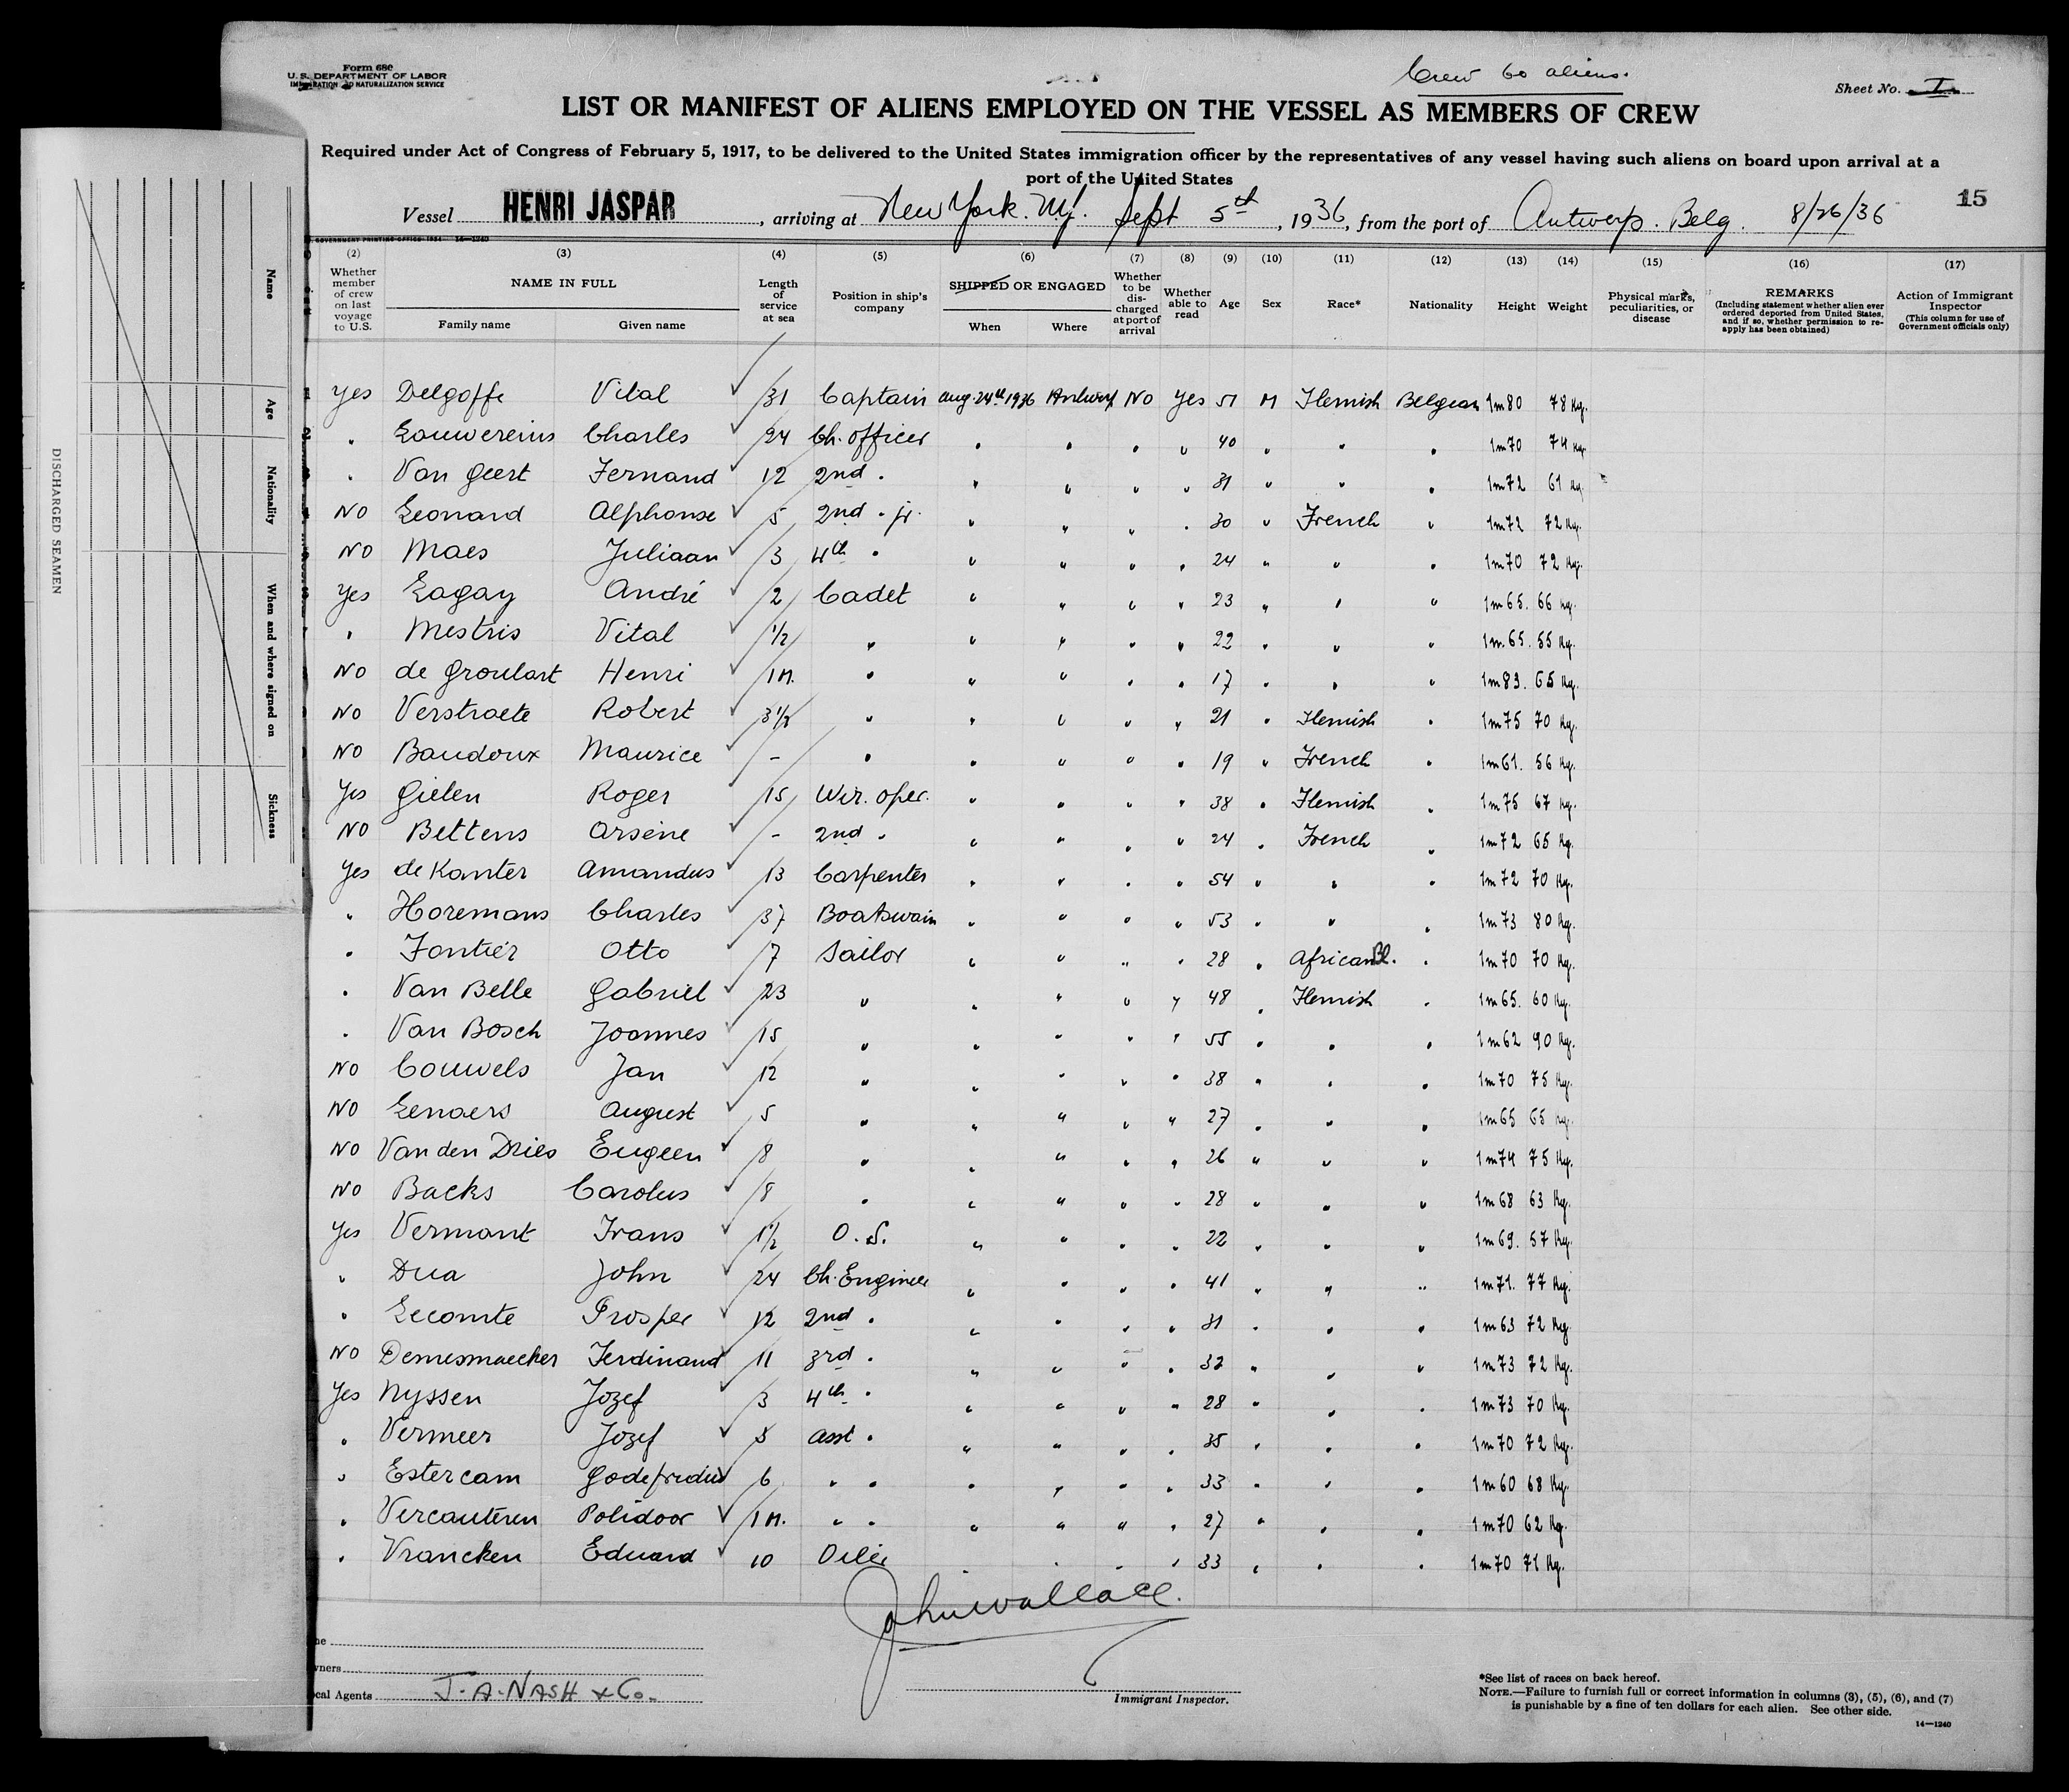 Form 680
U. S. DEPARTMENT OF LABOR
IMMIGRATION AND NATURALIZATION SERVICE
Crew 60 aliens.
Sheet No. I
LIST OR MANIFEST OF ALIENS EMPLOYED ON THE VESSEL AS MEMBERS OF CREW
Required under Act of Congress of February 5, 1917, to be delivered to the United States immigration officer by the representatives of any vessel having such aliens on board upon arrival at a
port of the United States
15
Vessel HENRI JASPAR, arriving at New York. N.Y. Sept 5th, 1936, from the port of Antwerp. Belg. 8/26/36
GOVERNMENT PRINTING OFFICE: 1934 14—1240
(2) (3) (4) (5) (6) (7) (8) (9) (10) (11) (12) (13) (14) (15) (16) (17)
Whether member of crew on last voyage to U.S.
NAME IN FULL
Family name Given name
Length of service at sea
Position in ship's company
SHIPPED OR ENGAGED
When Where
Whether to be discharged at port of arrival
Whether able to read
Age
Sex
Race*
Nationality
Height
Weight
Physical marks, peculiarities, or disease
REMARKS
(Including statement whether alien ever ordered deported from United States, and if so, whether permission to reapply has been obtained)
Action of Immigrant Inspector
(This column for use of Government officials only)
Yes Delgoffe Vital 31 Captain Aug. 24th 1936 Antwerp No Yes 51 M Flemish Belgian 1m80 78 Kg.
" Lauwereins Charles 24 Ch. officer " " " " 40 " " " 1m70 74 Kg.
" Van Geert Fernand 12 2nd " " " " " 31 " " " 1m72 61 Kg.
No Leonard Alphonse 5 2nd " jr. " " " " 30 " French " 1m72 72 Kg.
No Maes Juliaan 3 4th " " " " " 24 " " " 1m70 72 Kg.
Yes Lagay André 2 Cadet " " " " 23 " " " 1m65. 66 Kg.
" Mestris Vital 1/2 " " " " " 22 " " " 1m.65. 55 Kg.
No de Groulart Henri 1M. " " " " " 17 " " " 1m83. 65 Kg.
No Verstraete Robert 3 1/2 " " " " " 21 " Flemish " 1m75 70 Kg.
No Baudoux Maurice - " " " " " 19 " French " 1m61. 56 Kg.
Yes Gielen Roger 15 Wir. oper. " " " " 38 " Flemish " 1m75 67 Kg.
No Bettens Arsène - 2nd " " " " " 24 " French " 1m72 65 Kg.
Yes de Kanter Amandus 13 Carpenter " " " " 54 " " " 1m72 70 Kg.
" Horemans Charles 37 Boatswain " " " " 53 " " " 1m73 80 Kg.
" Fontier Otto 7 Sailor " " " " 28 " African Bl. " 1m70 70 Kg.
" Van Belle Gabriel 23 " " " " " 48 " Flemish " 1m65. 60 Kg.
" Van Bosch Joannes 15 " " " " " 55 " " " 1m62 90 Kg.
No Couwels Jan 12 " " " " " 38 " " " 1m70 75 Kg.
No Lenaers August 5 " " " " " 27 " " " 1m65 65 Kg.
No Van den Dries Eugeen 8 " " " " " 26 " " " 1m74 75 Kg.
No Backs Carolus 8 " " " " " 28 " " " 1m68 63 Kg.
Yes Vermant Frans 1 1/2 O. S. " " " " 22 " " " 1m69. 57 Kg.
" Dua John 24 Ch. Engineer " " " " 41 " " " 1m71. 77 Kg.
" Lecomte Prosper 12 2nd " " " " " 31 " " " 1m63 72 Kg.
No Demesmaecker Ferdinand 11 3rd " " " " " 32 " " " 1m73 72 Kg.
Yes Nyssen Jozef 3 4th " " " " " 28 " " " 1m73 70 Kg.
" Vermeer Jozef 5 asst " " " " " 35 " " " 1m70 72 Kg.
" Estercam Godefridus 6 " " " " " " 33 " " " 1m60 68 Kg.
" Vercauteren Polidoor 1M. " " " " " " 27 " " " 1m70 62 Kg.
" Vrancken Eduard 10 Oiler " " " " 33 " " " 1m70 71 Kg.
John Wallace.
Immigrant Inspector.
Local Agents J. A. NASH & Co.
*See list of races on back hereof.
NOTE.—Failure to furnish full or correct information in columns (3), (5), (6), and (7)
is punishable by a fine of ten dollars for each alien. See other side.
14—1240
DISCHARGED SEAMEN
Name
Age
Nationality
When and where signed on
Sickness